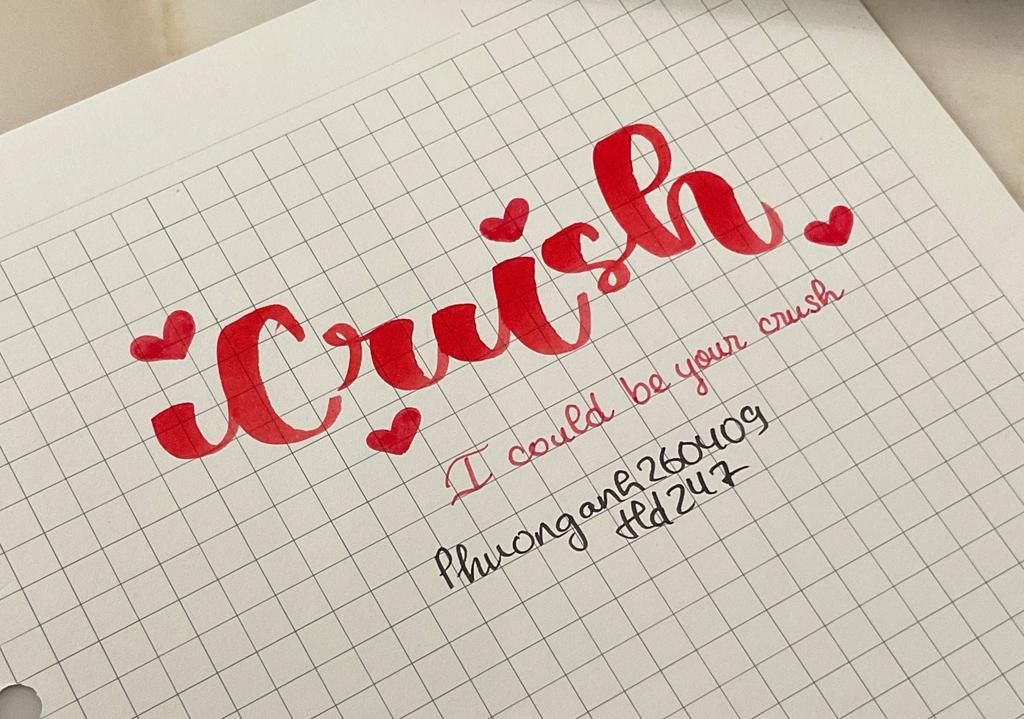 Crush
I could be your crush
Phuonganh260409
Hd247